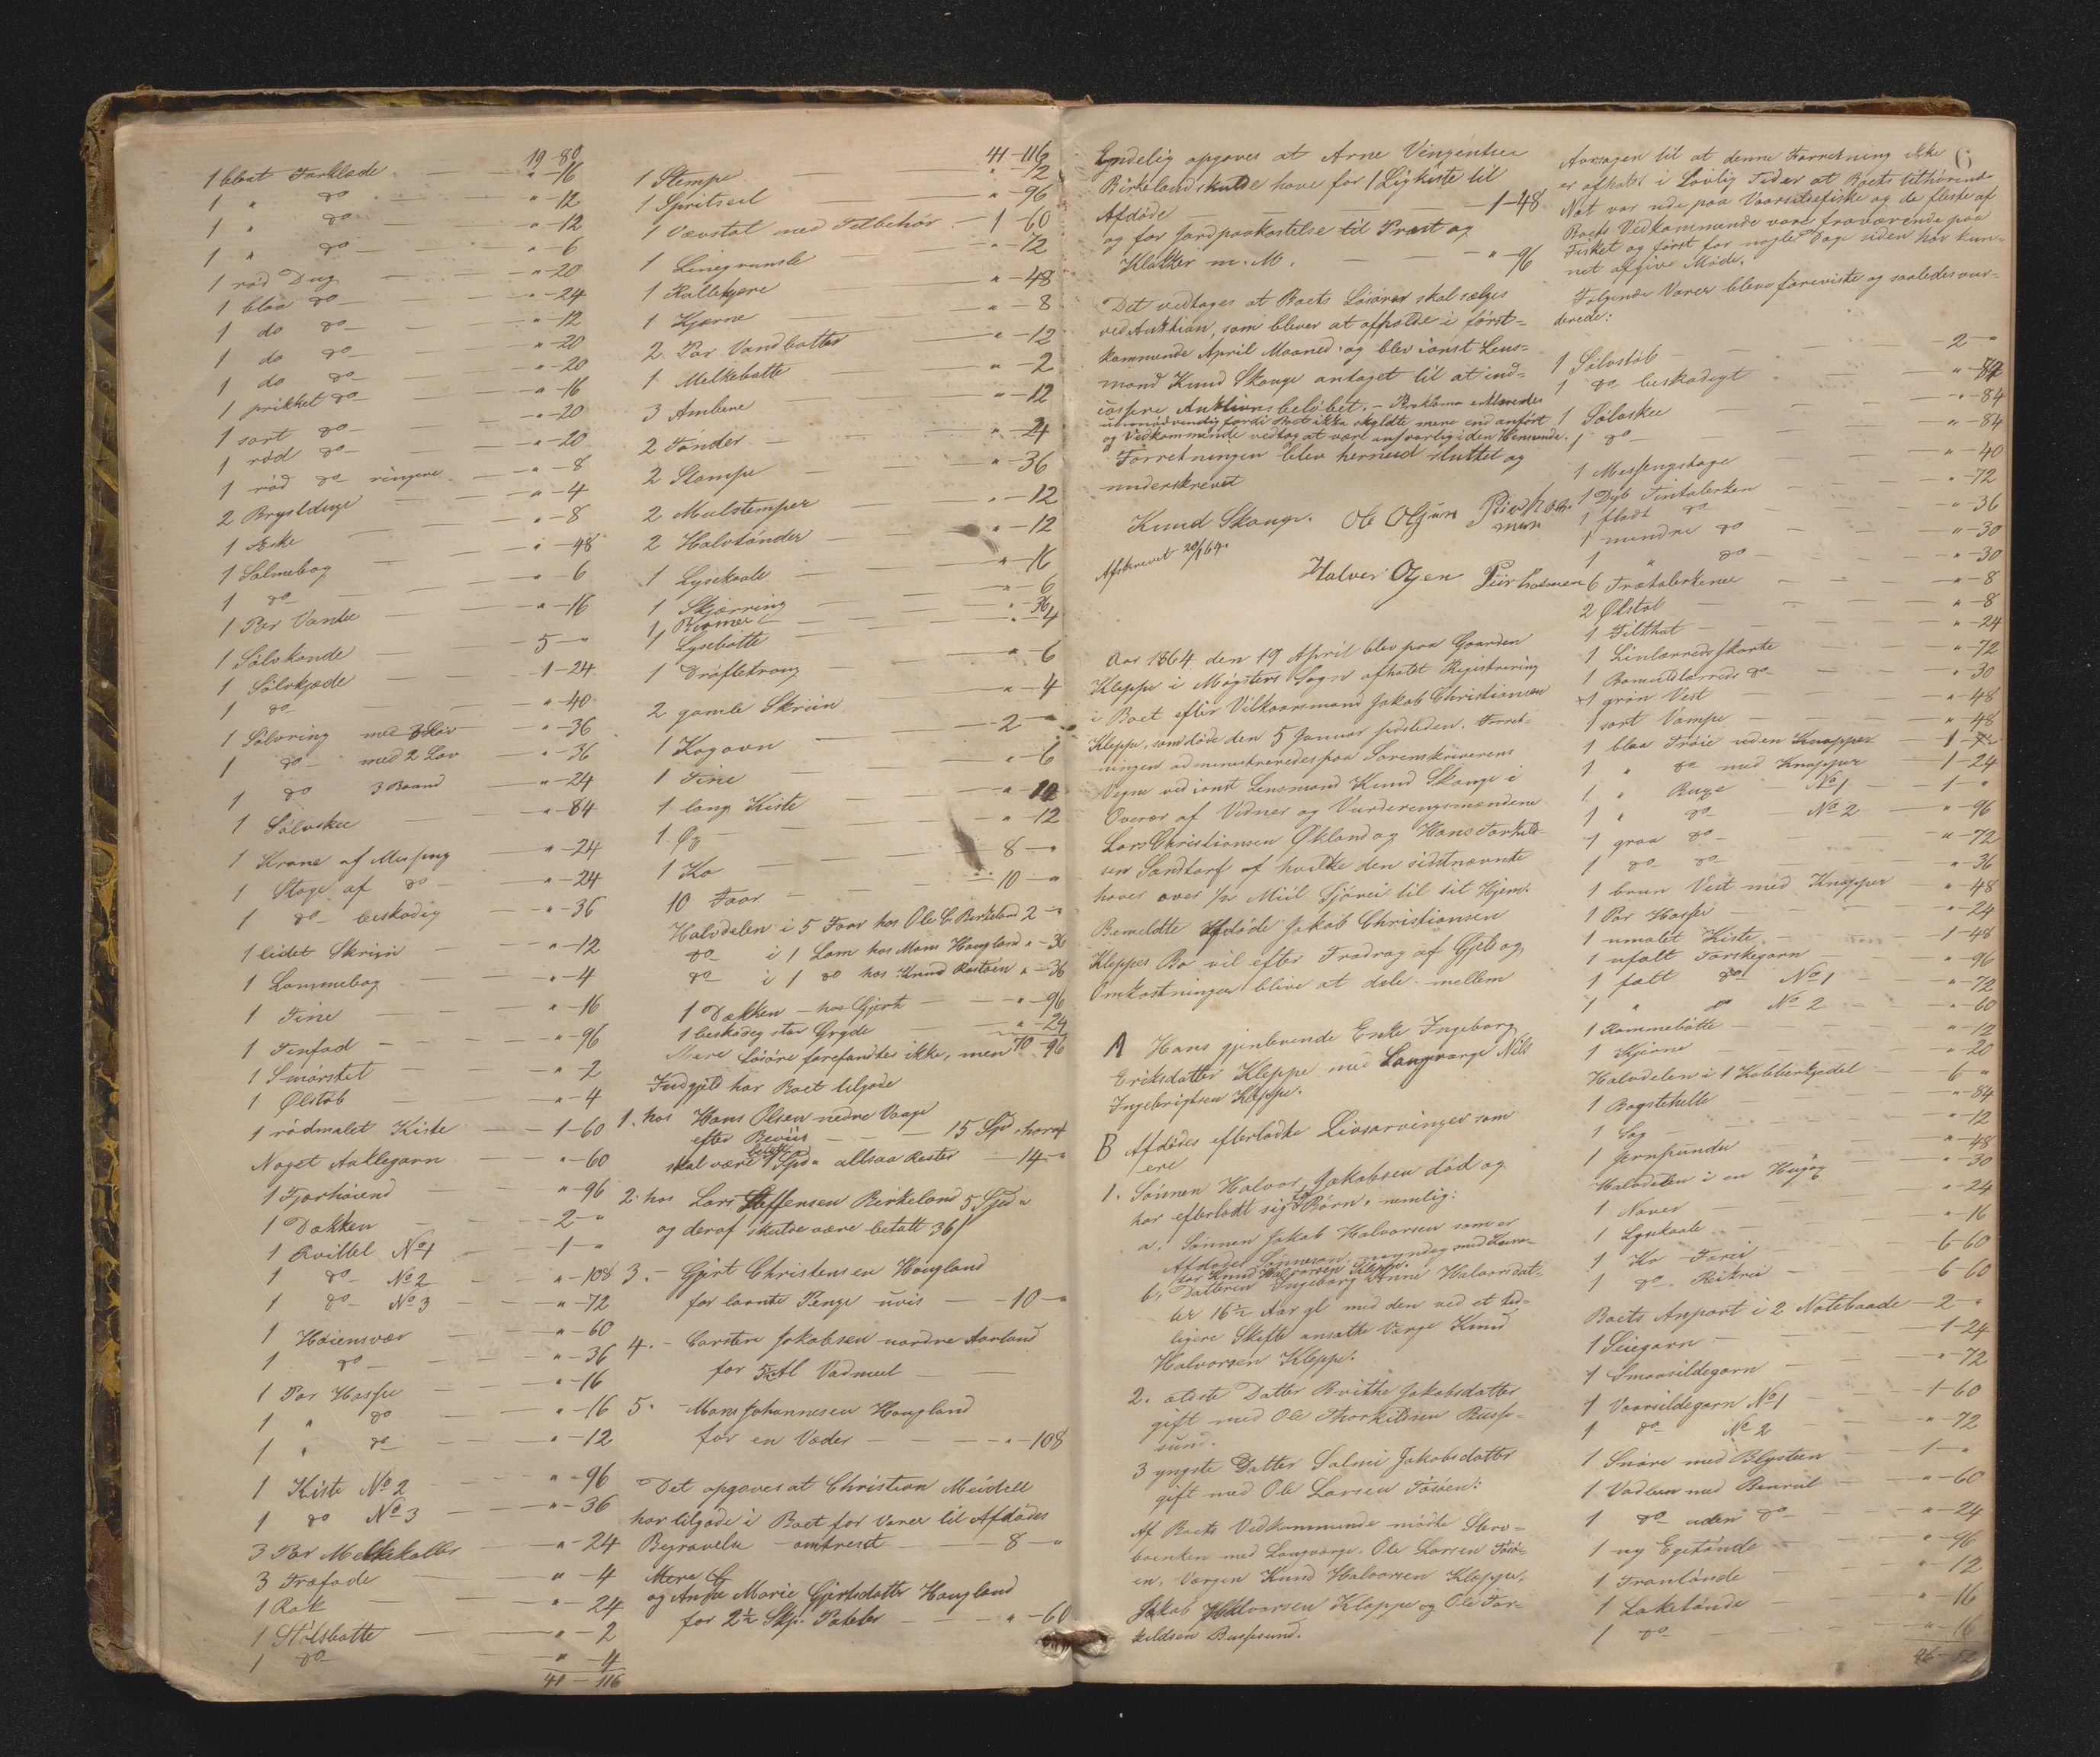 19-80
1 blaat Forklæde — "-16
1 " do — "-12
1 " do — "-12
1 " do — "-6
1 rød Dug — "-20
1 blaa do — "-24
1 do do — "-12
1 do do — "-20
1 do do — "-20
1 prikket do — "-16
1 sort do — "-20
1 rød do — "-20
1 rød do ringere — "-8
2 Brystduge — "-4
1 Æske — "-8
1 Salmebog — "-48
1 do — "-6
1 Par Vanter — "-16
1 Sølvkande — 5-"
1 Sølvkjæde — 1-24
1 do — "-40
1 Sølvring med 3 Løv — "-36
1 do med 2 Løv — "-36
1 do 3 Baand — "-24
1 Sølvskee — "-84
1 Krane af Messing — "-24
1 Stage af do — "-24
1 do beskadig — "-36
1 lidet Skriin — "-12
1 Lommebog — "-4
1 Tine — "-16
1 Tinfad — "-96
1 Smørstet — "-2
1 Ølstøb — "-4
1 rødmalet Kiste — 1-60
Noget Aaklegarn — "-60
1 Fjærhøiend — "-96
1 Dækken — 2-"
1 Qvittel No 1 — 1-"
1 do No 2 — "-108
1 do No 3 — "-72
1 Høiensvær — "-60
1 do — "-36
1 Par Hasser — "-16
1 " do — "-16
1 " do — "-12
1 Kiste No 2 — "-96
1 do No 3 — "-36
3 Par Melkekoller — "-24
3 Træfade — "-4
1 Rok — "-24
1 Stølsbøtte — "-2
1 do — "-4
41-116
41-116
1 Stempe — "-12
1 Spritseil — "-96
1 Vævstol med Tilbehør — 1-60
1 Linegrunsle — "-72
1 Rullekjøre — "-48
1 Kjærne — "-8
2 Par Vandbøtter — "-12
1 Melkebøtte — "-2
3 Ambere — "-12
2 Tønder — "-24
2 Stampe — "-36
2 Meelstemper — "-12
2 Halvtønder — "-12
1 Lysekaale — "-16
1 Skjærring — "-6
1 Bismer — "-36
1 Lysebøtte — "-4
1 Drøftetroug — "-6
2 gamle Skriin — "-4
1 Kogovn — 2-"
1 Tine — "-6
1 lang Kiste — "-12
1 Øg — "-12
1 Ko — 8-"
10 Faar — 10-"
Halvdelen i 5 Faar hos Ole C. Birkeland 2-"
do i 1 Lam hos Mons Hougland "-36
do i 1 do hos Knud Rostøen "-36
1 Dækken — hos Gjert — "-96
1 beskadig stor Gryde — "-24
Mere Løsøre forefandtes ikke, men 70-96
Indgjeld har Boet tilgode
1. hos Hans Olsen nedre Vaage
efter Beviis — 15 Spd. hvoraf
skal være betalt 1 Spd. altsaa Rester — 14-"
2. hos Lars Steffensen Birkeland 5 Spd "
og deraf skulde være betalt 36 ß
3. — Gjert Christensen Hougland
for laante Penge uvis — 10-"
4. — Carsten Jakobsen nordre Aarland
for 5 Al Vadmeel —
5. — Mons Johannesen Hougland
for en Væder — "-108
Det opgaves at Christian Meidell
har tilgode i Boet for Varer til Afdødes
Begravelse omtrent — 8-"
Mere G
og Anne Marie Gjertsdatter Hougland
for 2½ Skp. Poteter — "-60
Endelig opgaves at Arne Vingentsen
Birkeland skulde have for 1 Ligkiste til
Afdøde — 1-48
og for Jordpaakastelse til Præst og
Klokker m. M. — "-96
Det vedtages at Boets Løsøre skal sælges
ved Auktion, som bliver at afholde i først-
kommende April Maaned og blev const Lens-
mand Knud Skauge antaget til at ind-
cassere Auktionsbeløbet. — Proklama erklæredes
unødvendig fordi Boet ikke skyldte mere end anført
og Vedkommende vedtog at være ansvarlig i den Henseende.
Forretningen blev hermed sluttet og
underskrevet
Knud Skauge. Ole Olsen Piirhol-
men
Afskrevet 20/1 64.
Halvor Olsen Piirholmen
Aar 1864 den 19 April blev paa Gaarden
Kleppe i Møgsters Sogn afholdt Registrering
i Boet efter Vilkaarsmand Jakob Christiansen
Kleppe, som døde den 5 Januar sidstleden. Forret-
ningen administreredes paa Sorenskriverens
Vegne ved const Lensmand Knud Skauge i
Overær af Vidner og Vurderingsmændene
Lars Christiansen Økland og Hans Torkild-
sen Sandtorf af hvilke den sidstnævnte
haver over ½ Miil Sjøvei til sit Hjem.
Bemeldte Afdøde Jakob Christiansen
Kleppes Bo vil efter Fradrag af Gjeld og
Omkostninger blive at dele mellem
A Hans gjenlevende Enke Ingeborg
Eriksdatter Kleppe med Laugværge Nils
Ingebrigtsen Kleppe.
B Afdødes efterladte Livsarvinger som
ere
1. Sønnen Halvor Jakobsen død og
har efterladt sig 2 Børn, nemlig:
a. Sønnen Jakob Halvorsen som er
Afdødes Sønnesøn, myndig med Kura-
tor Knud Halvorsen Kleppe.
b, Datteren Ingeborg Anne Halvorsdat-
ter 16½ Aar gl. med den ved et tid-
ligere Skifte ansatte Værge Knud
Halvorsen Kleppe.
2. ældste Datter Brithe Jakobsdatter
gift med Ole Thorkildsen Buss-
sund.
3 yngste Datter Salmi Jakobsdatter
gift med Ole Larsen Tøsøen:
Af Boets Vedkommende mødte Sterv-
boenken med Laugværge. Ole Larsen Tøsø-
en, Værgen Knud Halvorsen Kleppe,
Jakob Halvorsen Kleppe og Ole Tor-
kildsen Bussesund.
6
Aarsagen til at denne Forretning ikke
er afholdt i Lovlig Tid er at Boets tilhørende
Not var ude paa Vaarsildfiske og de fleste af
Boets Vedkommende vare fraværende paa
Fisket og først for nogle Dage siden har kun-
net afgive Møde.
Følgende Varer bleve foreviste og saaledes vur-
derede:
1 Sølvstøb — 2-"
1 do beskadigt — "-84
1 Sølvskee — "-84
1 do — "-84
1 Messingstage — "-40
1 Dyb Tintalerken — "-72
1 fladt do — "-36
1 mindre do — "-30
1 " do — "-30
6 Trætalerkener — "-8
2 Ølstøb — "-8
1 Filthat — "-24
1 Linlærredsskorte — "-72
1 Bomuldlærreds do — "-30
1 grøn Vest — "-48
1 sort Vampe — "-48
1 blaa Trøie uden Knapper — 1-72
1 " do med Knapper — 1-24
1 " Buxe No 1 — 1-"
1 " do No 2 — "-96
1 graa do — "-72
1 do do — "-36
1 brun Vest med Knapper — "-48
1 Par Hasser — "-24
1 umalet Kiste — 1-48
1 ufalt Torskegarn — "-96
1 falt do No 1 — "-72
1 " do No 2 — "-60
1 Rømmebøtte — "-12
1 Kjerne — "-20
Halvdelen i 1 Kobberkjedel — 6-"
1 Bagstehelle — "-84
1 Sag — "-12
1 Jernpunder — "-48
Halvdelen i en Huggøx — "-30
1 Naver — "-24
1 Lysekaale — "-16
1 Ko Farei — 6-60
1 do Reikrei — 6-60
Boets Anpart i 2 Notebaade — 2-"
1 Seiegarn — 1-24
1 Smaasildegarn — "-72
1 Vaarsildegarn No 1 — 1-60
1 do No 2 — "-72
1 Snøre med Blysteen — 1-"
1 Vadbeen med Benrul — "-60
1 do uden do — "-24
1 ny Egetønde — "-96
1 Trantønde — "-12
1 Laketønde — "-16
1 do — "-16
46-52